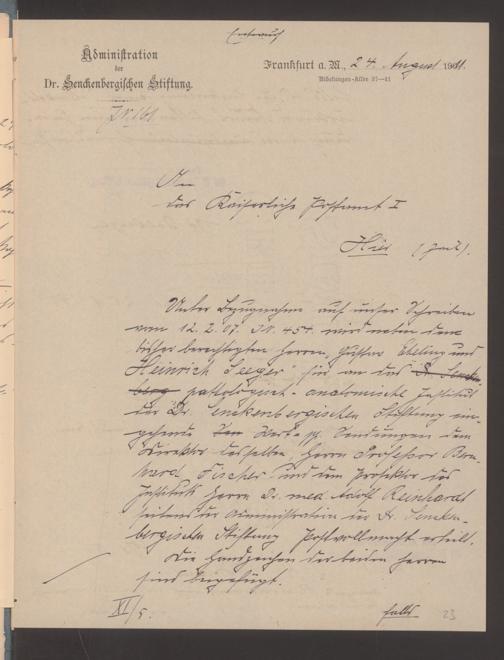 Entwurf
Administration
der
Dr. Senckenbergischen Stiftung.
Frankfurt a. M., 24. August 1911.
Nibelungen-Allee 37–41
An
das Kaiserliche Postamt I
Hier
Unter Bezugnahme auf unser Schreiben
vom 12. 2. 07. 454. wird neben den
bisher berechtigten Herren, Gustav und
Heinrich Seeger für an das D. Sencken
berg. pathologisch-anatomische Institut
der Dr. Senckenbergischen Stiftung ein-
gehende Wert- pp. Sendungen dem
Direktor desselben, Herrn Professor Bern-
hard Fischer und dem Prosektor des
Instituts Herrn Dr. med. Adolf Reinhardt
seitens der Administration der Dr. Sencken-
bergischen Stiftung Postvollmacht erteilt.
Die Handzeichen der beiden Herren
sind beigefügt.
XI/5.
23